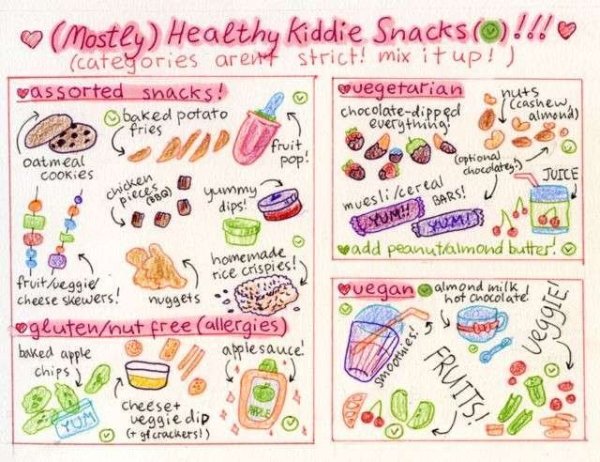 (Mostly) Healthy Kiddie Snacks( )!!!
(categories arent strict! mix it up!)
assorted snacks!
oatmeal
cookies
baked potato
fries
fruit
pop!
chicken
pieces
(BBQ)
yummy
dips!
fruit/veggie/
cheese skewers!
nuggets
homemade
rice crispies!
gluten/nut free (allergies)
baked apple
chips
YUM
cheese+
veggie dip
(+ gf crackers!)
applesauce!
vegetarian
chocolate-dipped
everything!
nuts
(cashew,
almond)
(optional
chocolatey!)
muesli/cereal
BARS!
YUM!!
YUM!
JUICE
add peanut/almond butter!
vegan
almond milk
hot chocolate!
smoothies!
FRUITS!
VEGGIE!